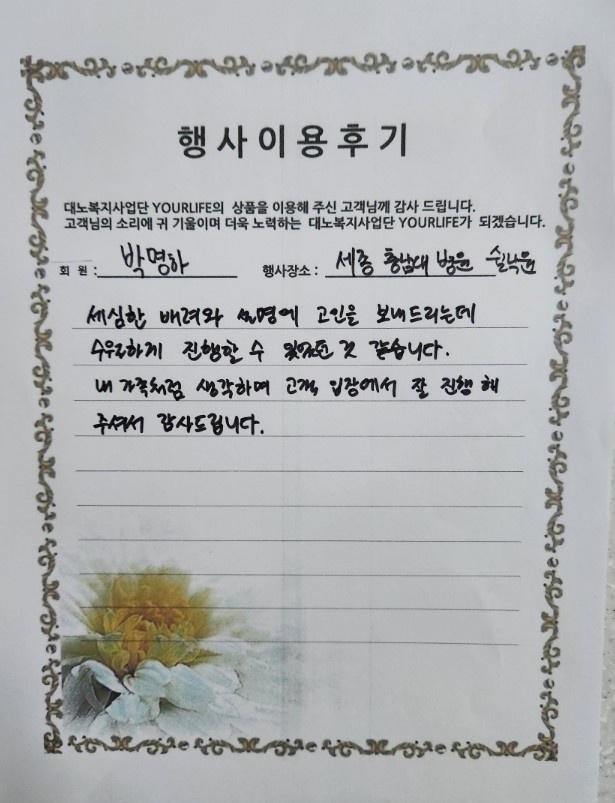 행사이용후기
대노복지사업단 YOURLIFE의 상품을 이용해 주신 고객님께 감사 드립니다.
고객님의 소리에 귀 기울이며 더욱 노력하는 대노복지사업단 YOURLIFE가 되겠습니다.
회 원 : 박명하 행사장소 : 세종 충남대 병원
세심한 배려와 설명에 고인을 보내드리는데
수월하게 진행할 수 있었던 것 같습니다.
내 가족처럼 생각하며 고객 입장에서 잘 진행 해
주셔서 감사드립니다.